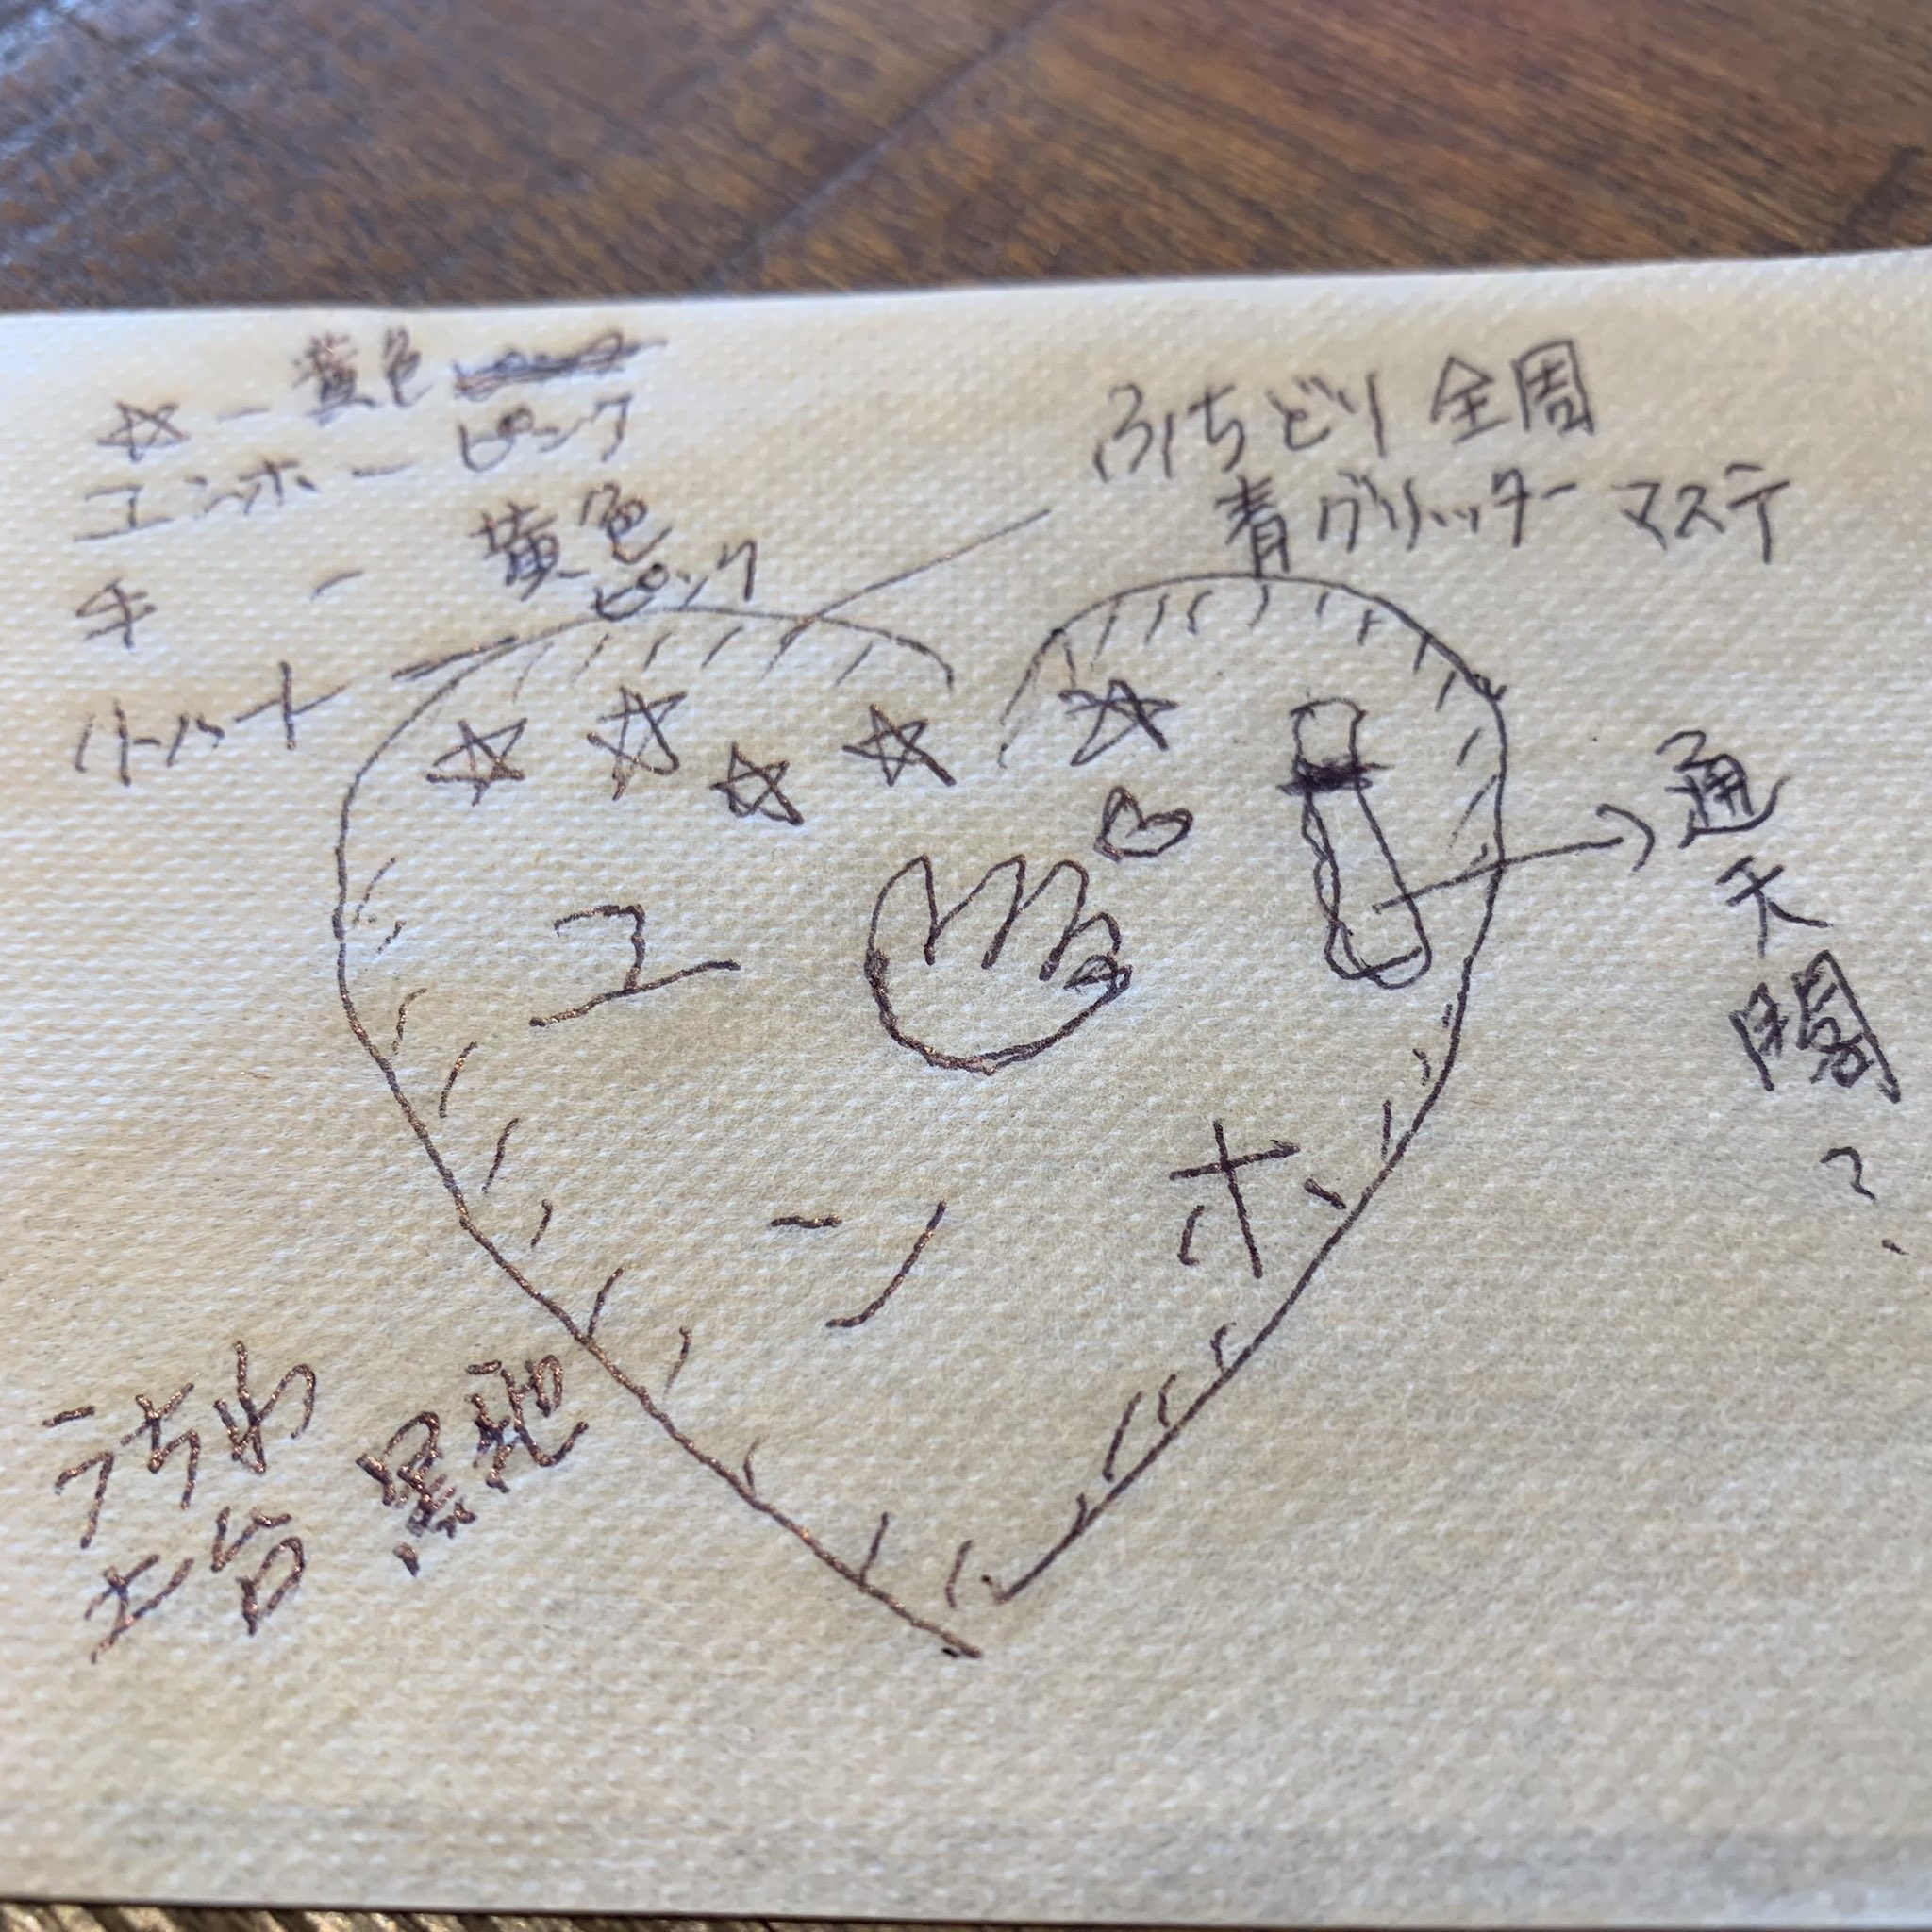 ☆ー黄色
ユンホーピンク
手 ー 黄色
ハート ー ピンク
ふちどり 全周
青グリッターマステ
ユ
ン
ホ
通天閣?
うちわ
土台 黒地